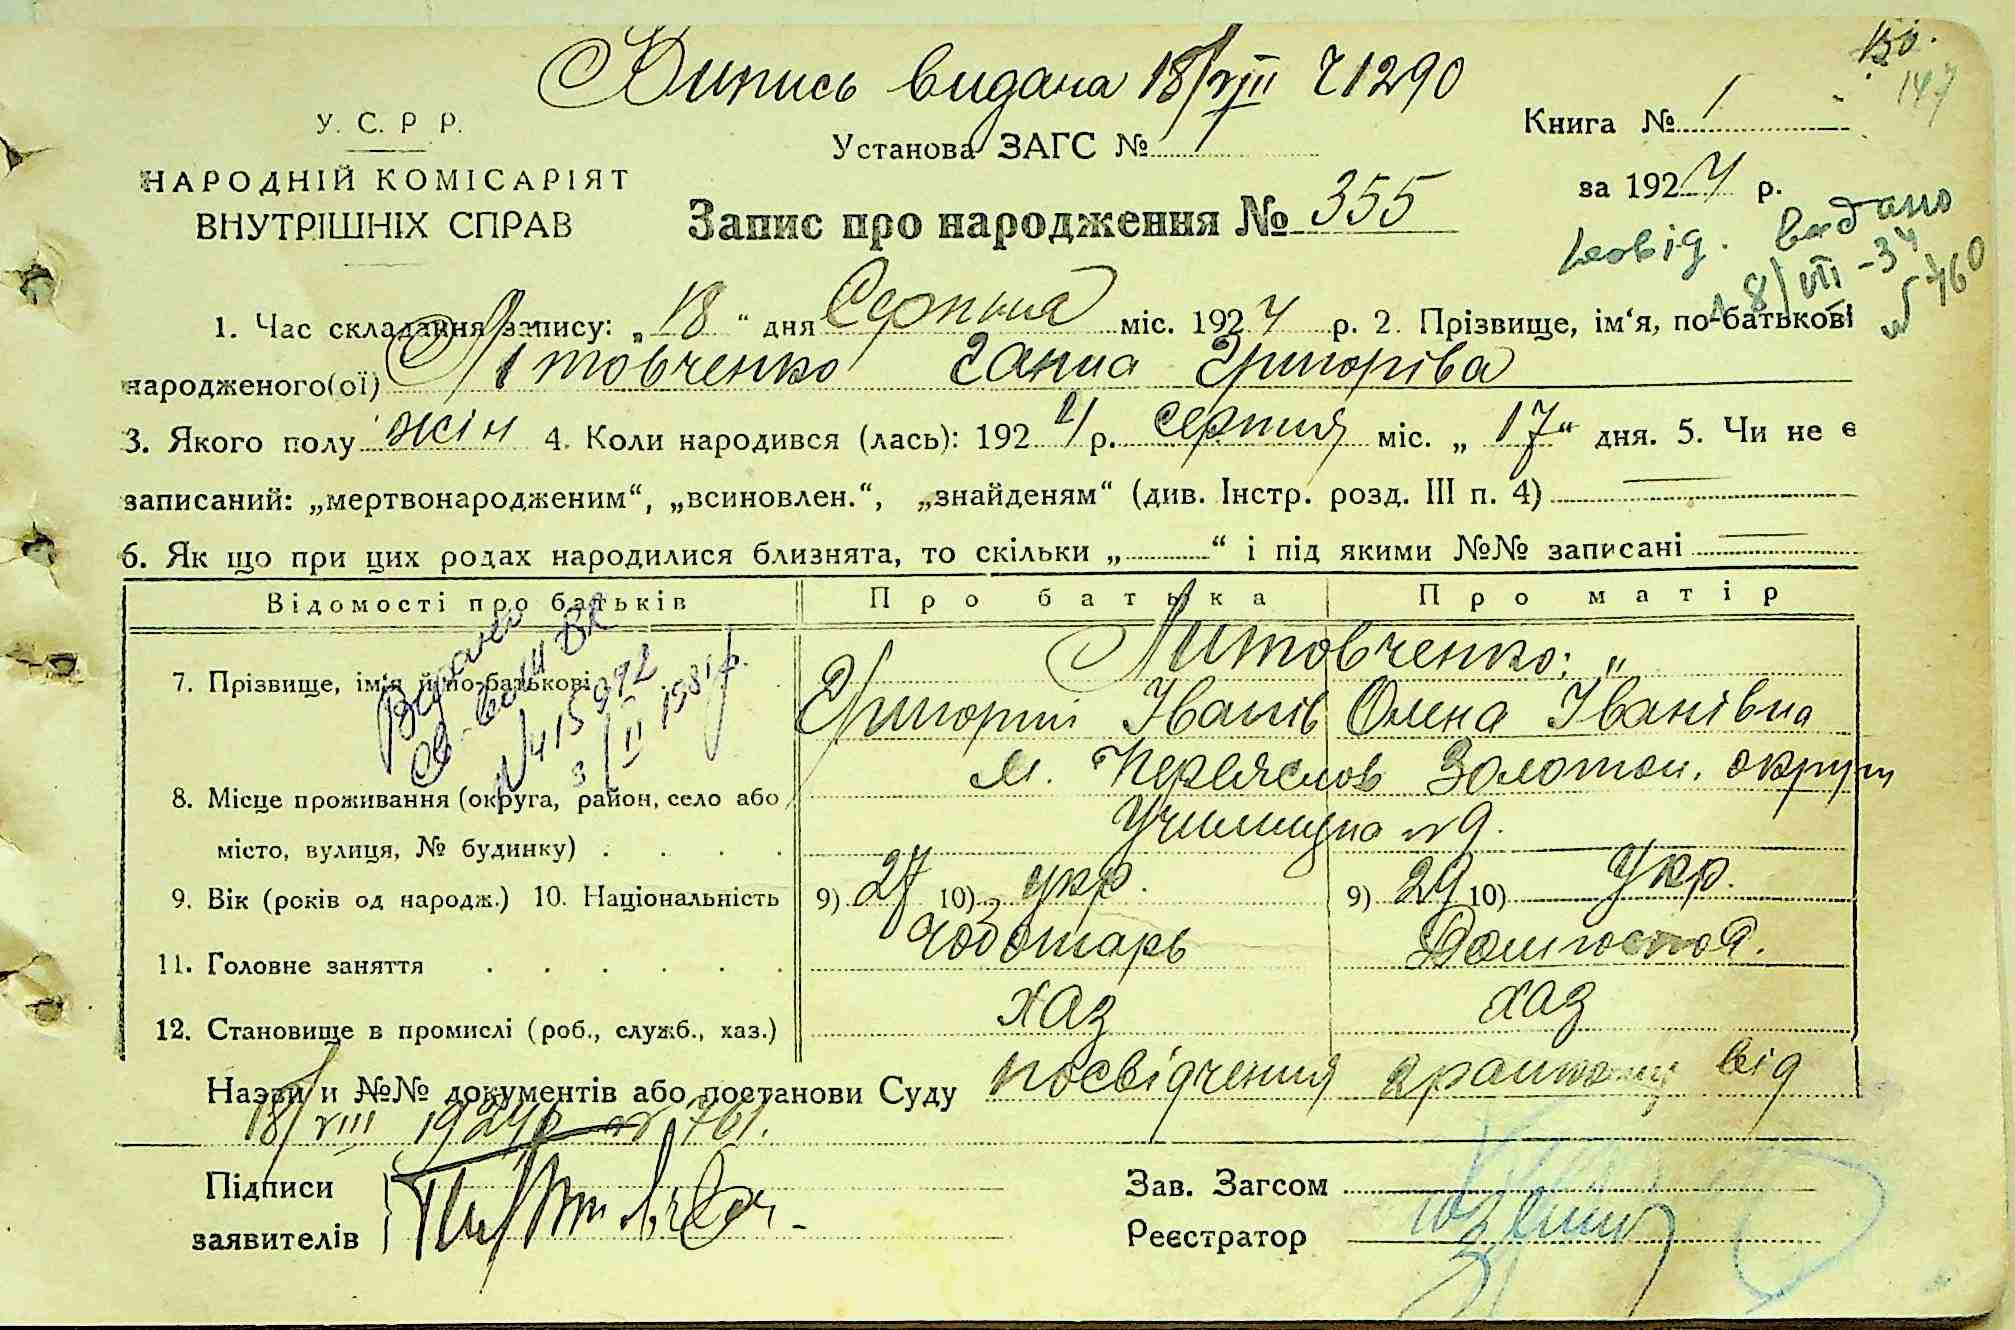 150.
147
Випись видана 18/VIII Ч 1290
У. С. Р Р.
НАРОДНІЙ КОМІСАРІЯТ
ВНУТРІШНІХ СПРАВ
Установа ЗАГС № 1
Запис про народження № 355
Книга № 1
за 1924 р.
видано
8/VII -34
№ 460
1. Час складання запису: „18“ дня Серпня міс. 1924 р. 2. Прізвище, ім‘я, по-батькові
народженого(ої) Літовченко Ганна Григоріва
3. Якого полу жін 4. Коли народився (лась): 1924 р. серпня міс. „17“ дня. 5. Чи не є
записаний: „мертвонародженим“, „всиновлен.“, „знайденям“ (див. Інстр. розд. III п. 4) —
6. Як що при цих родах народилися близнята, то скільки „ “ і під якими №№ записані —
Відомості про батьків Про батька Про матір
Видано
св-во III ВК
N 415992
3/II 1981р.
7. Прізвище, ім‘я й по-батькові Литовченко; „
Григорій Іванів Олена Іванівна
8. Місце проживання (округа, район, село або м. Переяслов Золотон. округи
місто, вулиця, № будинку) . . . . Училищна № 9.
9. Вік (років од народж.) 10. Національність 9) 27 10) укр. 9) 24 10) Укр.
11. Головне заняття . . . . . . Чоботарь Домгоспод.
12. Становище в промислі (роб., служб., хаз.) хаз хаз
Назви и №№ документів або постанови Суду посвідчення від
18/VIII 1924р № 761.
Підписи
заявителів
Зав. Загсом
Реєстратор